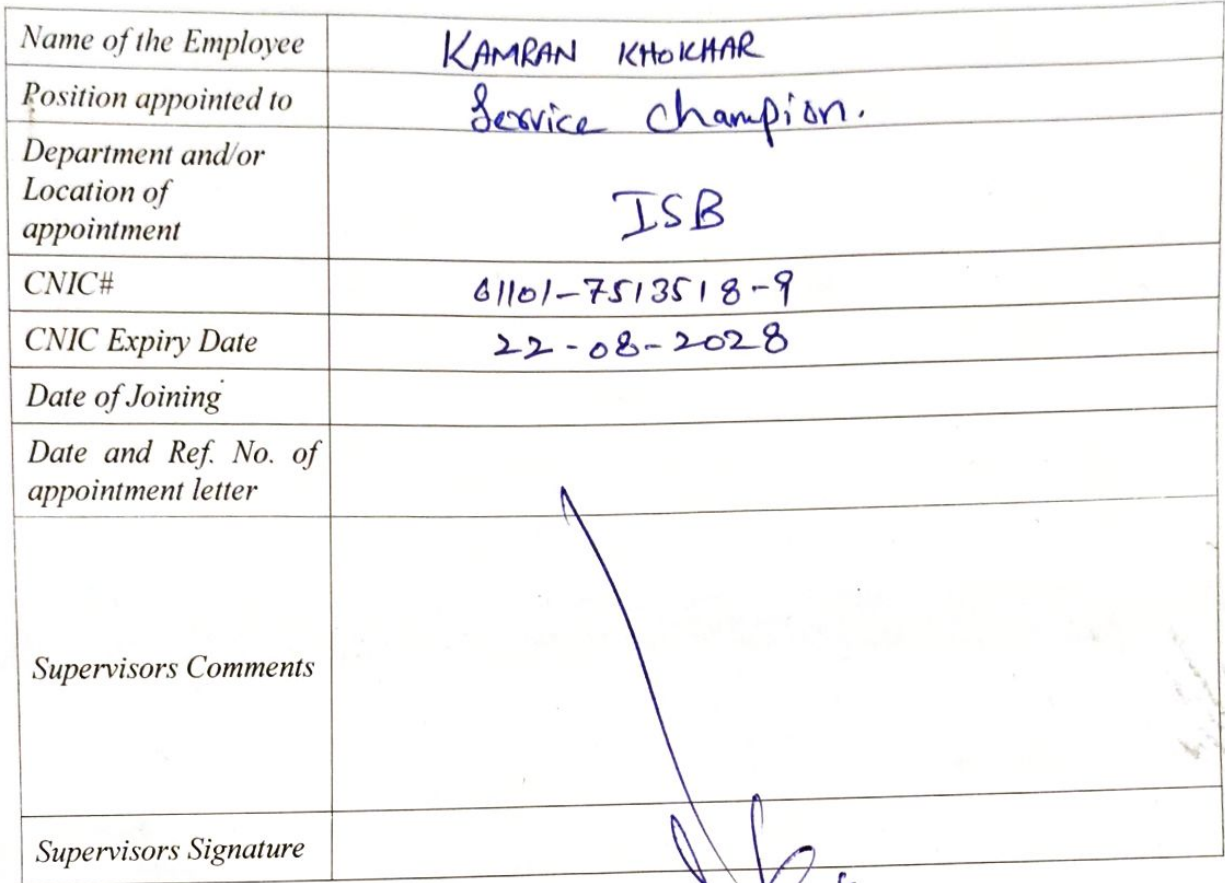 Name of the Employee KAMRAN KHOKHAR
Position appointed to Service Champion.
Department and/or
Location of
appointment ISB
CNIC# 61101-7513518-9
CNIC Expiry Date 22-08-2028
Date of Joining
Date and Ref. No. of
appointment letter
Supervisors Comments
Supervisors Signature